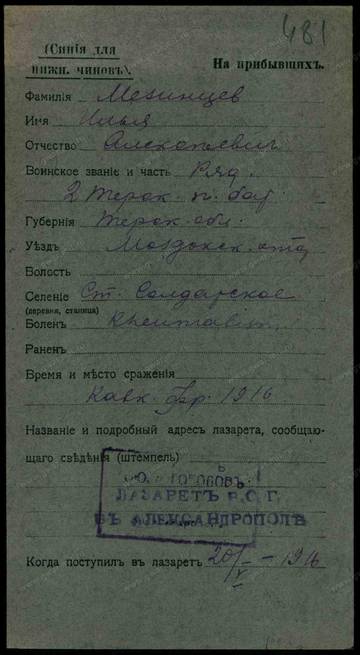 481
(Синія для
нижн. чиновъ).
На прибывшихъ.
Фамилія Мезинцев
Имя Илья
Отчество Алексеевич
Воинское званіе и часть Ряд.
2 Терск. п. бат
Губернія Терск. обл.
Уѣздъ Моздокск. отд
Волость
Селеніе Ст. Солдатское
(деревня, станица)
Боленъ
Раненъ
Время и мѣсто сраженія
Кавк. фр. 1916
Названіе и подробный адресъ лазарета, сообщаю-
щаго свѣдѣнія (штемпель)
ЛАЗАРЕТЪ В.С.Г.
ВЪ АЛЕКСАНДРОПОЛѢ
Когда поступилъ въ лазаретъ 20/V – 1916